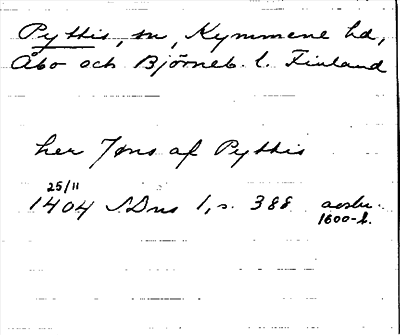 Pyttis, sn, Kymmene hd,
Åbo och Björneb. l. Finland
her Jøns af Pyttis
25/11
1404 SDns 1, s. 388 avskr.
1600-t.